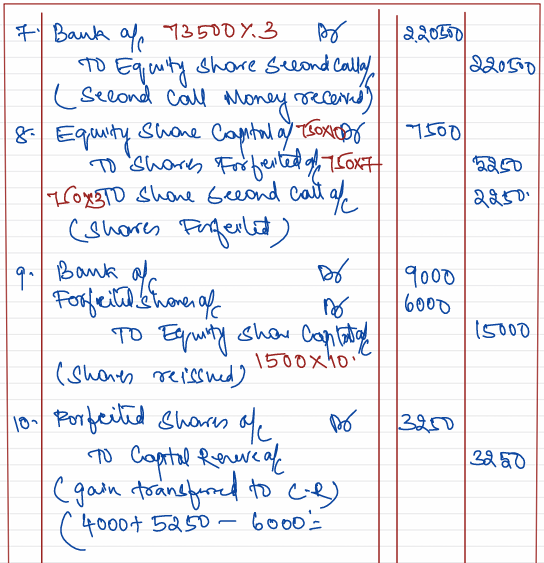 7. Bank a/c 73500 X. 3 Dr 220500
TO Equity Share Second Call a/c 220500
(Second Call Money received)
8. Equity Share Capital a/c 750X10 Dr 7500
TO Shares Forfeited a/c 750X7 5250
750X3 TO Share Second Call a/c 2250.
(Shares Forfeited)
9. Bank a/c Dr 9000
Forfeited Shares a/c Dr 6000
TO Equity Share Capital a/c 15000
(Shares reissued) 1500 X 10.
10. Forfeited Shares a/c Dr 3250
TO Capital Reserve a/c 3250
(gain transferred to C.R)
(4000 + 5250 - 6000 =